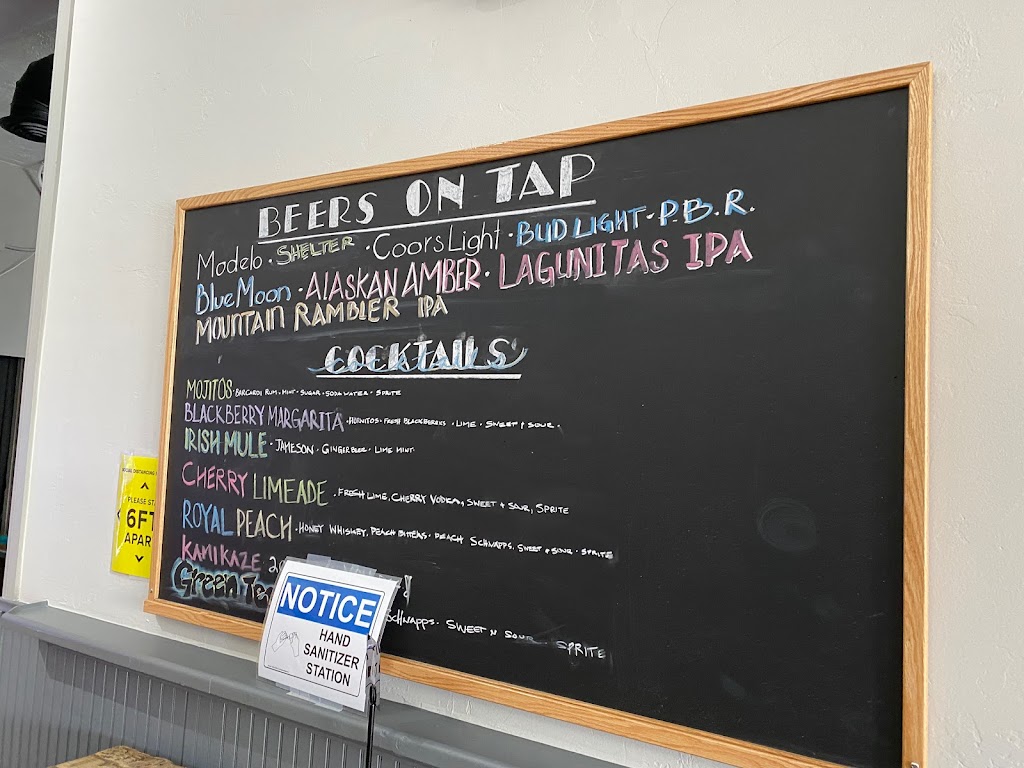 BEERS ON TAP
Modelo · SHELTER · Coors Light · BUD LIGHT · P.B.R.
Blue Moon · ALASKAN AMBER · LAGUNITAS IPA
MOUNTAIN RAMBLER IPA
COCKTAILS
MOJITOS · BARCARDI RUM · MINT · SUGAR · SODA WATER · SPRITE
BLACKBERRY MARGARITA · HORNITOS · FRESH BLACKBERRIES · LIME · SWEET & SOUR ·
IRISH MULE · JAMESON · GINGER BEER · LIME MINT
CHERRY LIMEADE · FRESH LIME, CHERRY VODKA, SWEET + SOUR, SPRITE
ROYAL PEACH · HONEY WHISKEY, PEACH BITTERS · PEACH SCHNAPPS, SWEET & SOUR · SPRITE
KAMIKAZE
Green
SCHNAPPS · SWEET N SOUR SPRITE
NOTICE
HAND
SANITIZER
STATION
SOCIAL DISTANCING
PLEASE ST
6FT
APAR